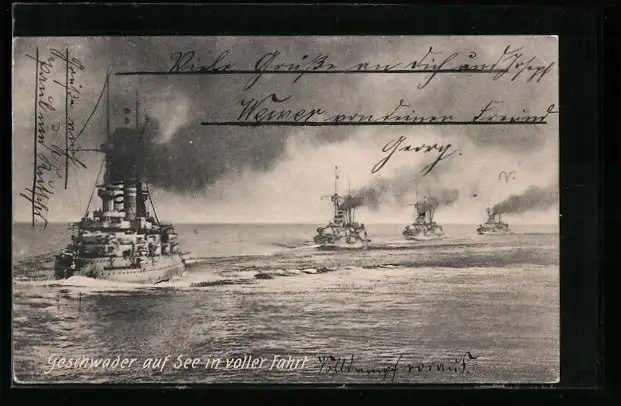 Viele Grüße an Dich und Joseph
Wewer von deinem Freund
Georg.
Grüße auch
Geschwader auf See in voller Fahrt.
Volldampf voraus.